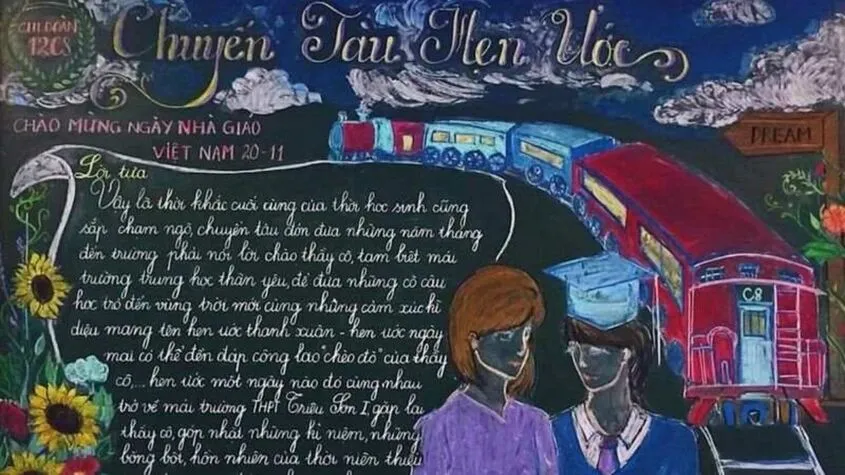 CHI ĐOÀN
12C8
Chuyến Tàu Hẹn Ước
CHÀO MỪNG NGÀY NHÀ GIÁO
VIỆT NAM 20-11
DREAM
Lời tựa
Vậy là thời khắc cuối cùng của thời học sinh cũng
sắp chạm ngõ, chuyến tàu đón đưa những năm tháng
đến trường phải nói lời chào thầy cô, tạm biệt mái
trường trung học thân yêu, để đưa những cô cậu
học trò đến vùng trời mới cùng những cảm xúc kì
diệu mang tên hẹn ước thanh xuân - hẹn ước ngày
mai có thể đền đáp công lao "chèo đò" của thầy
cô,... hẹn ước một ngày nào đó cùng nhau
trở về mái trường THPT Triệu Sơn I gặp lại
thầy cô, góp nhặt những kỉ niệm, những
bồng bột, hồn nhiên của thời niên thiếu
C8